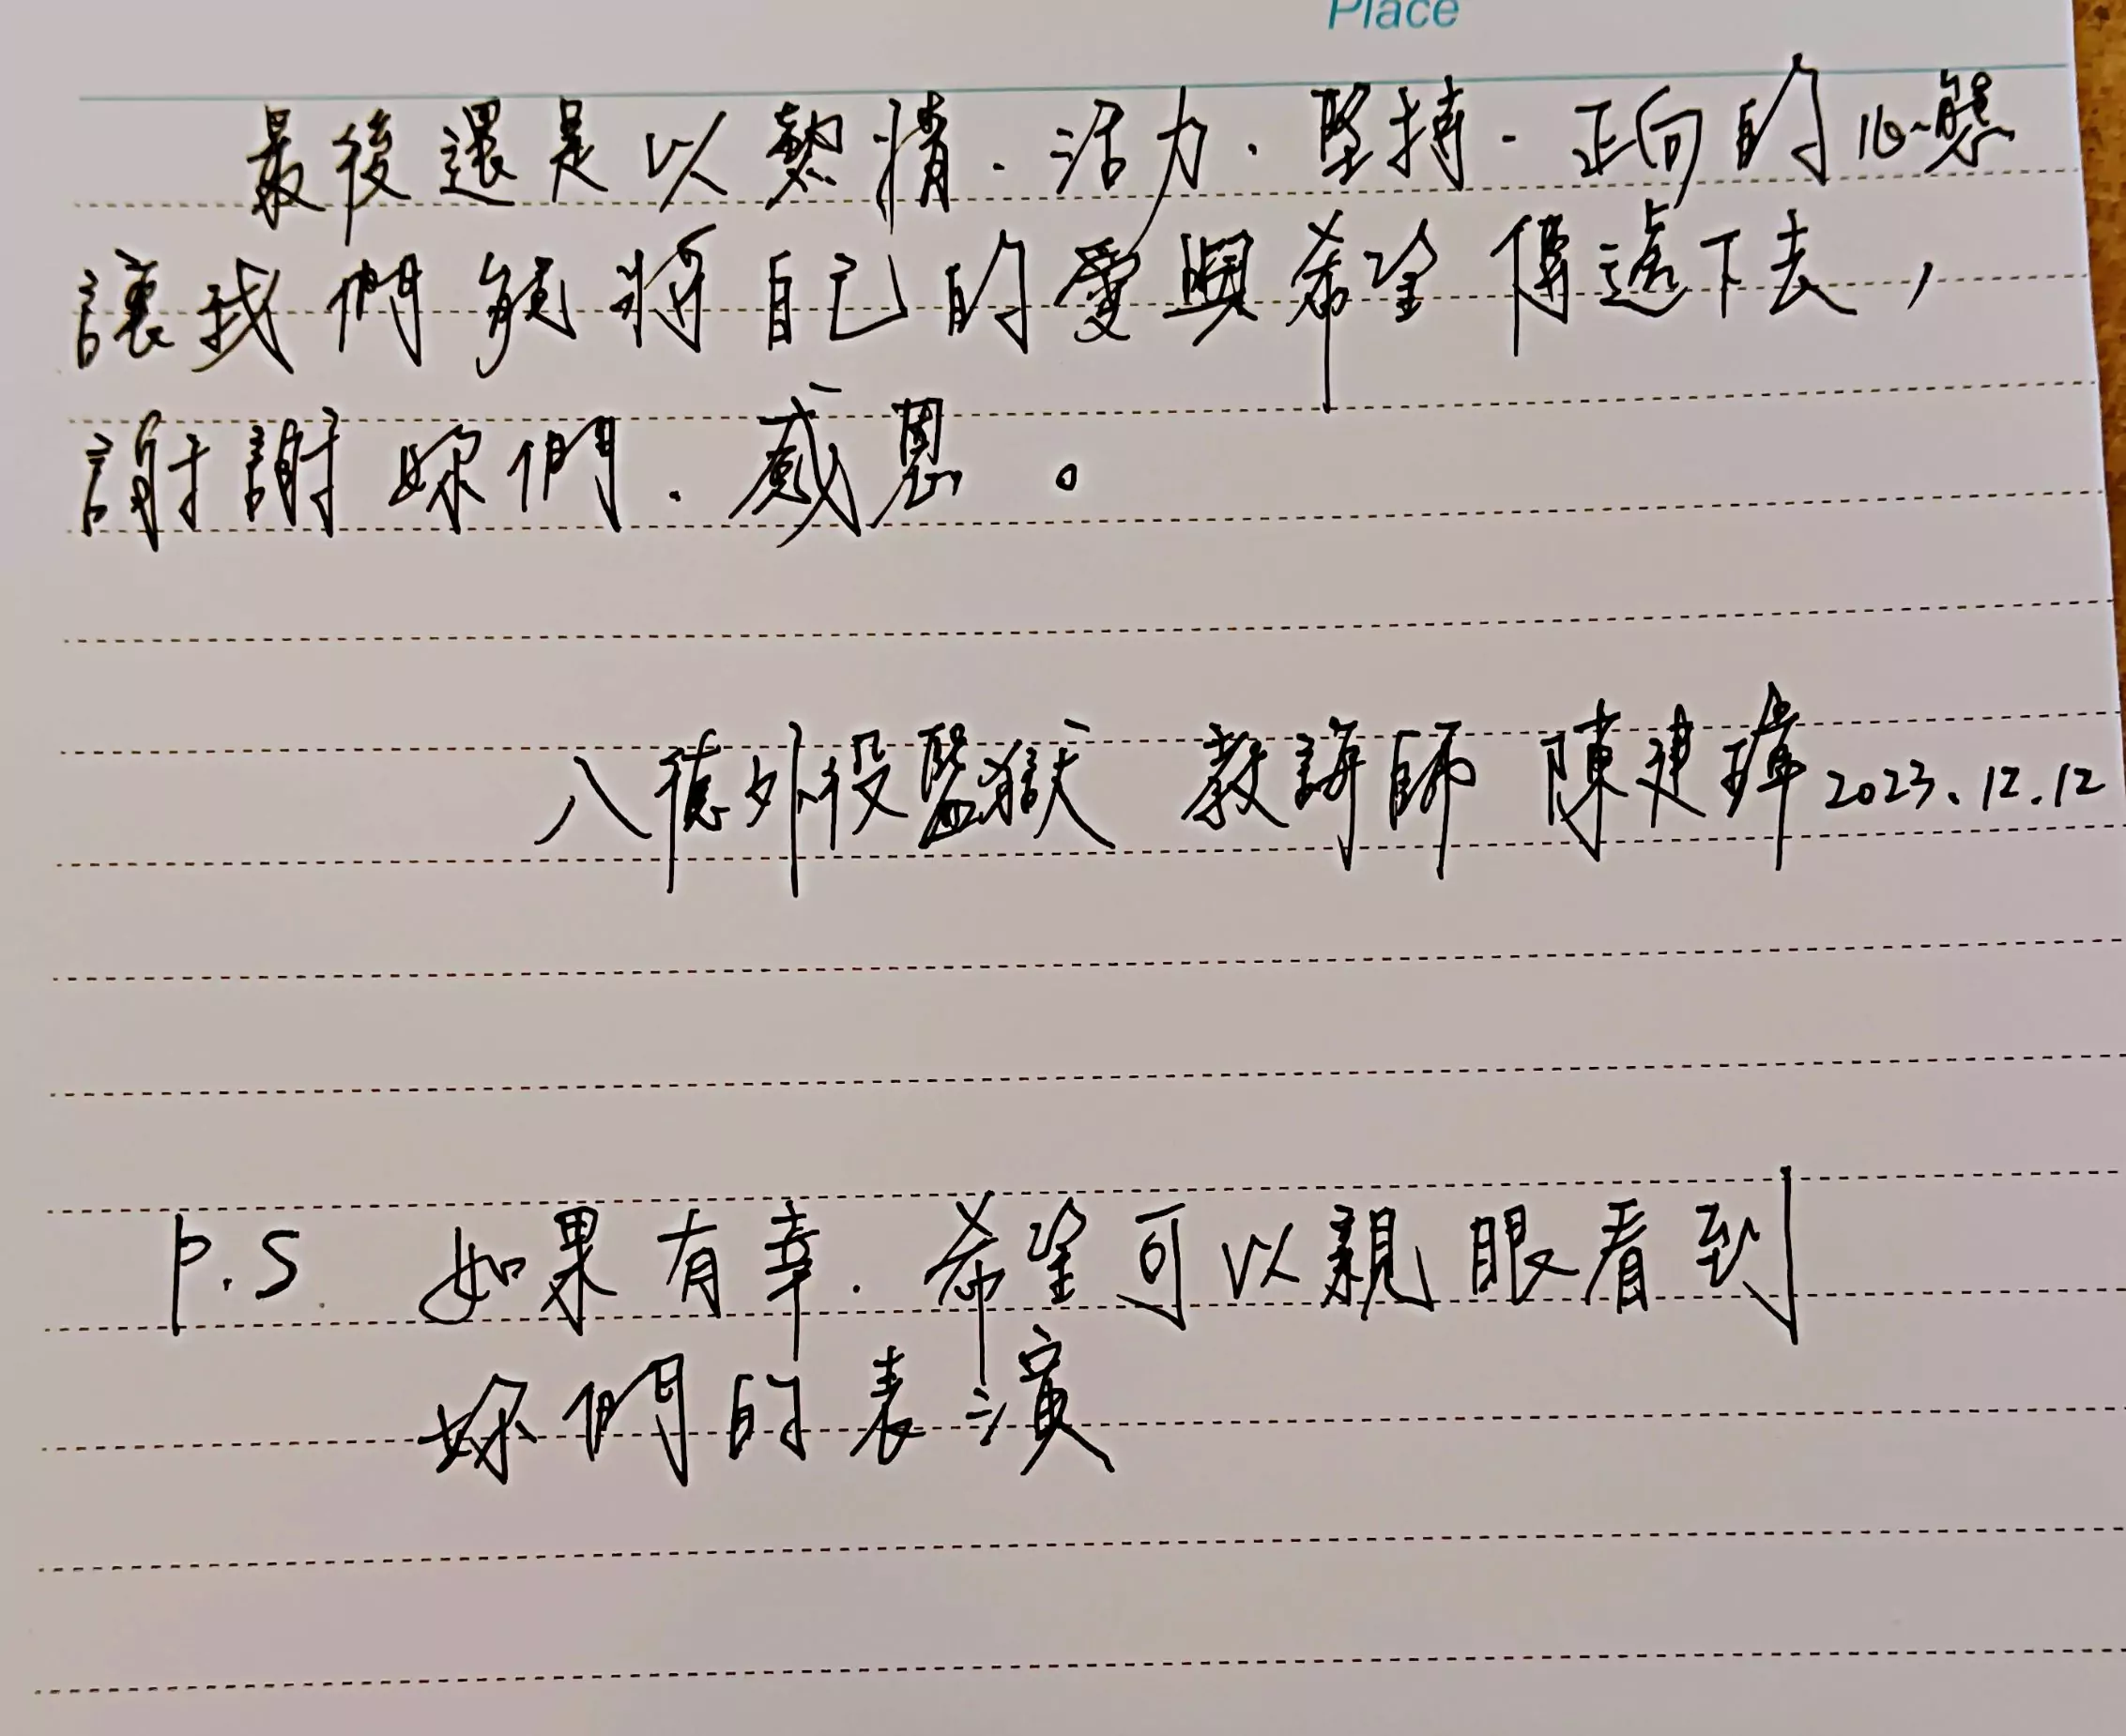 Place
最後還是以熱情.活力.堅持.正向的心態
讓我們能將自己的愛與希望傳遞下去,
謝謝妳們.感恩。
八德外役監獄 教誨師 陳建瑋 2023.12.12
P.S. 如果有幸.希望可以親眼看到
妳們的表演